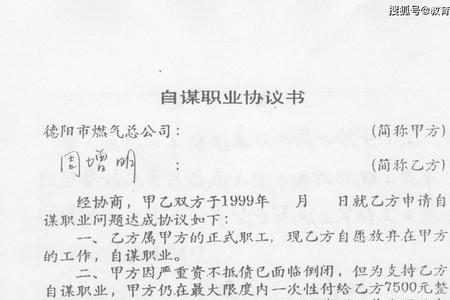 搜狐号@教育
自谋职业协议书
德阳市燃气总公司： (简称甲方)
周增明 ： (简称乙方)
经协商，甲乙双方于1999年 月 日就乙方申请自
谋职业问题达成协议如下：
一、乙方属甲方的正式职工，现乙方自愿放弃在甲方
的工作，自谋职业。
二、甲方因严重资不抵债已面临倒闭，但为支持乙方
自谋职业，甲方仍在最大限度内一次性付给乙方7500元整